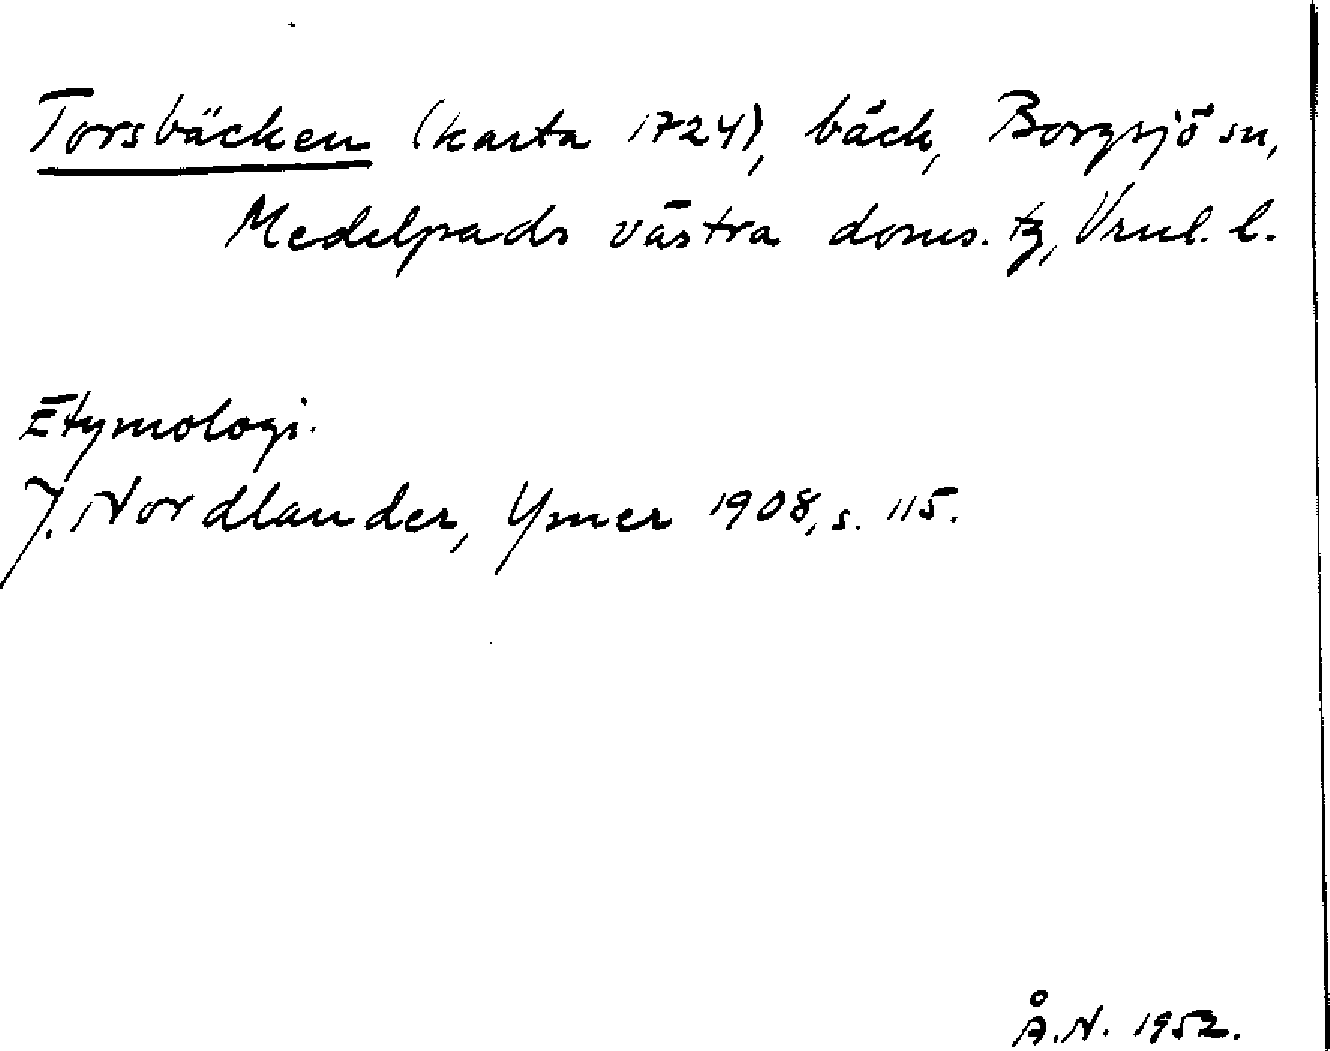 Torsbäcken (karta 1724), bäck, Borgsjö sn,
Medelpads västra doms. tg, Vrnl. l.
Etymologi.
J. Nordlander, Ymer 1908, s. 115.
Å.N. 1952.